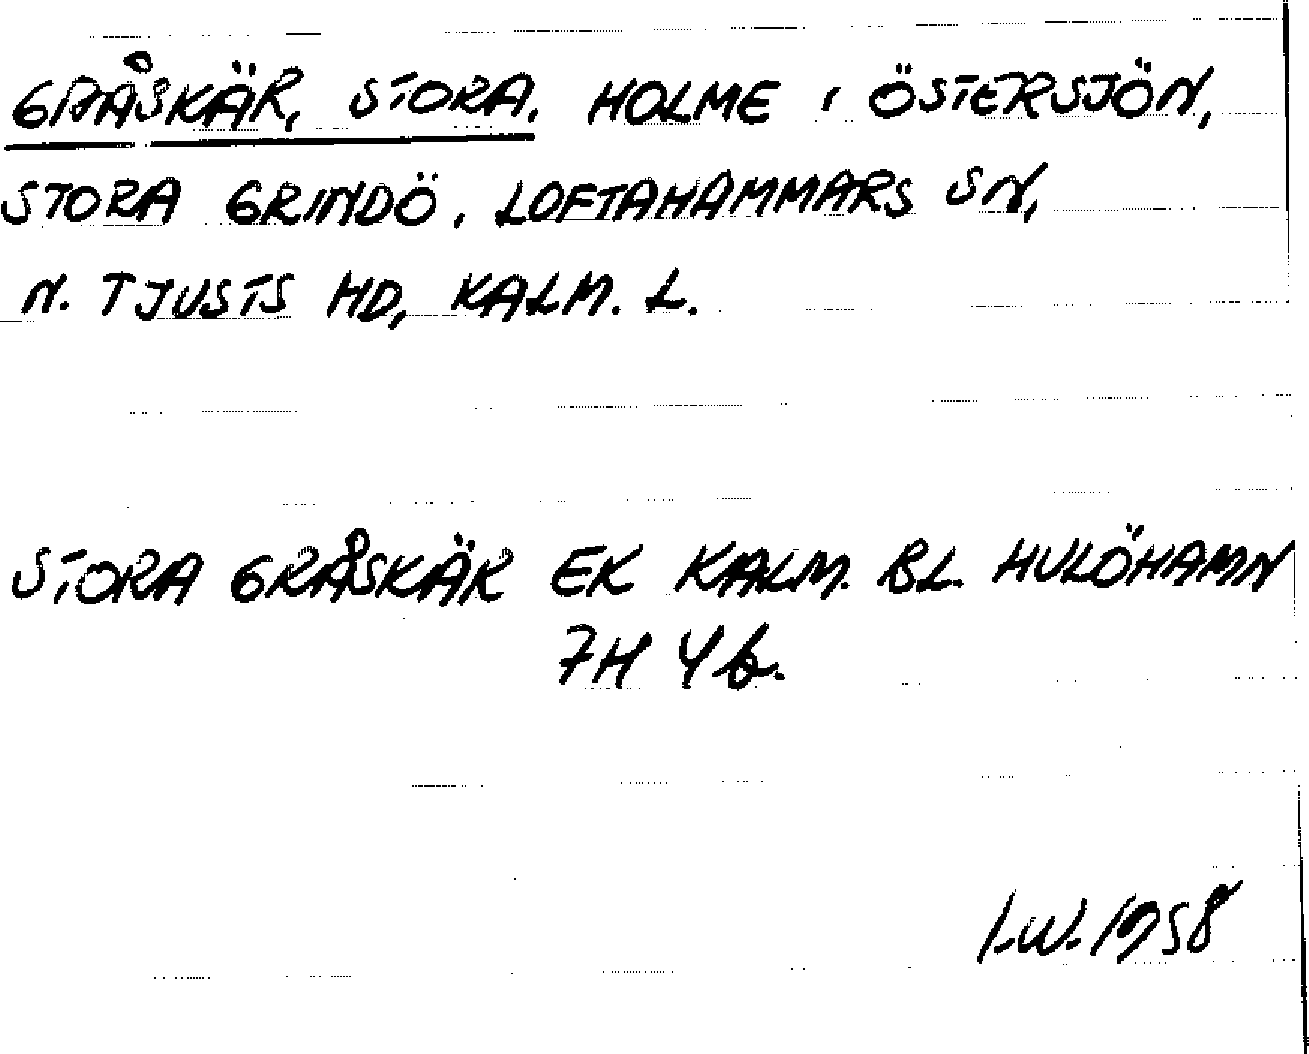 GRÅSKÄR, STORA. HOLME I ÖSTERSJÖN,
STORA GRINDÖ, LOFTAHAMMARS SN,
N. TJUSTS HD, KALM. L.
STORA GRÅSKÄR EK KALM. BL. HULÖHAMN
7H 4b.
I.W. 1958